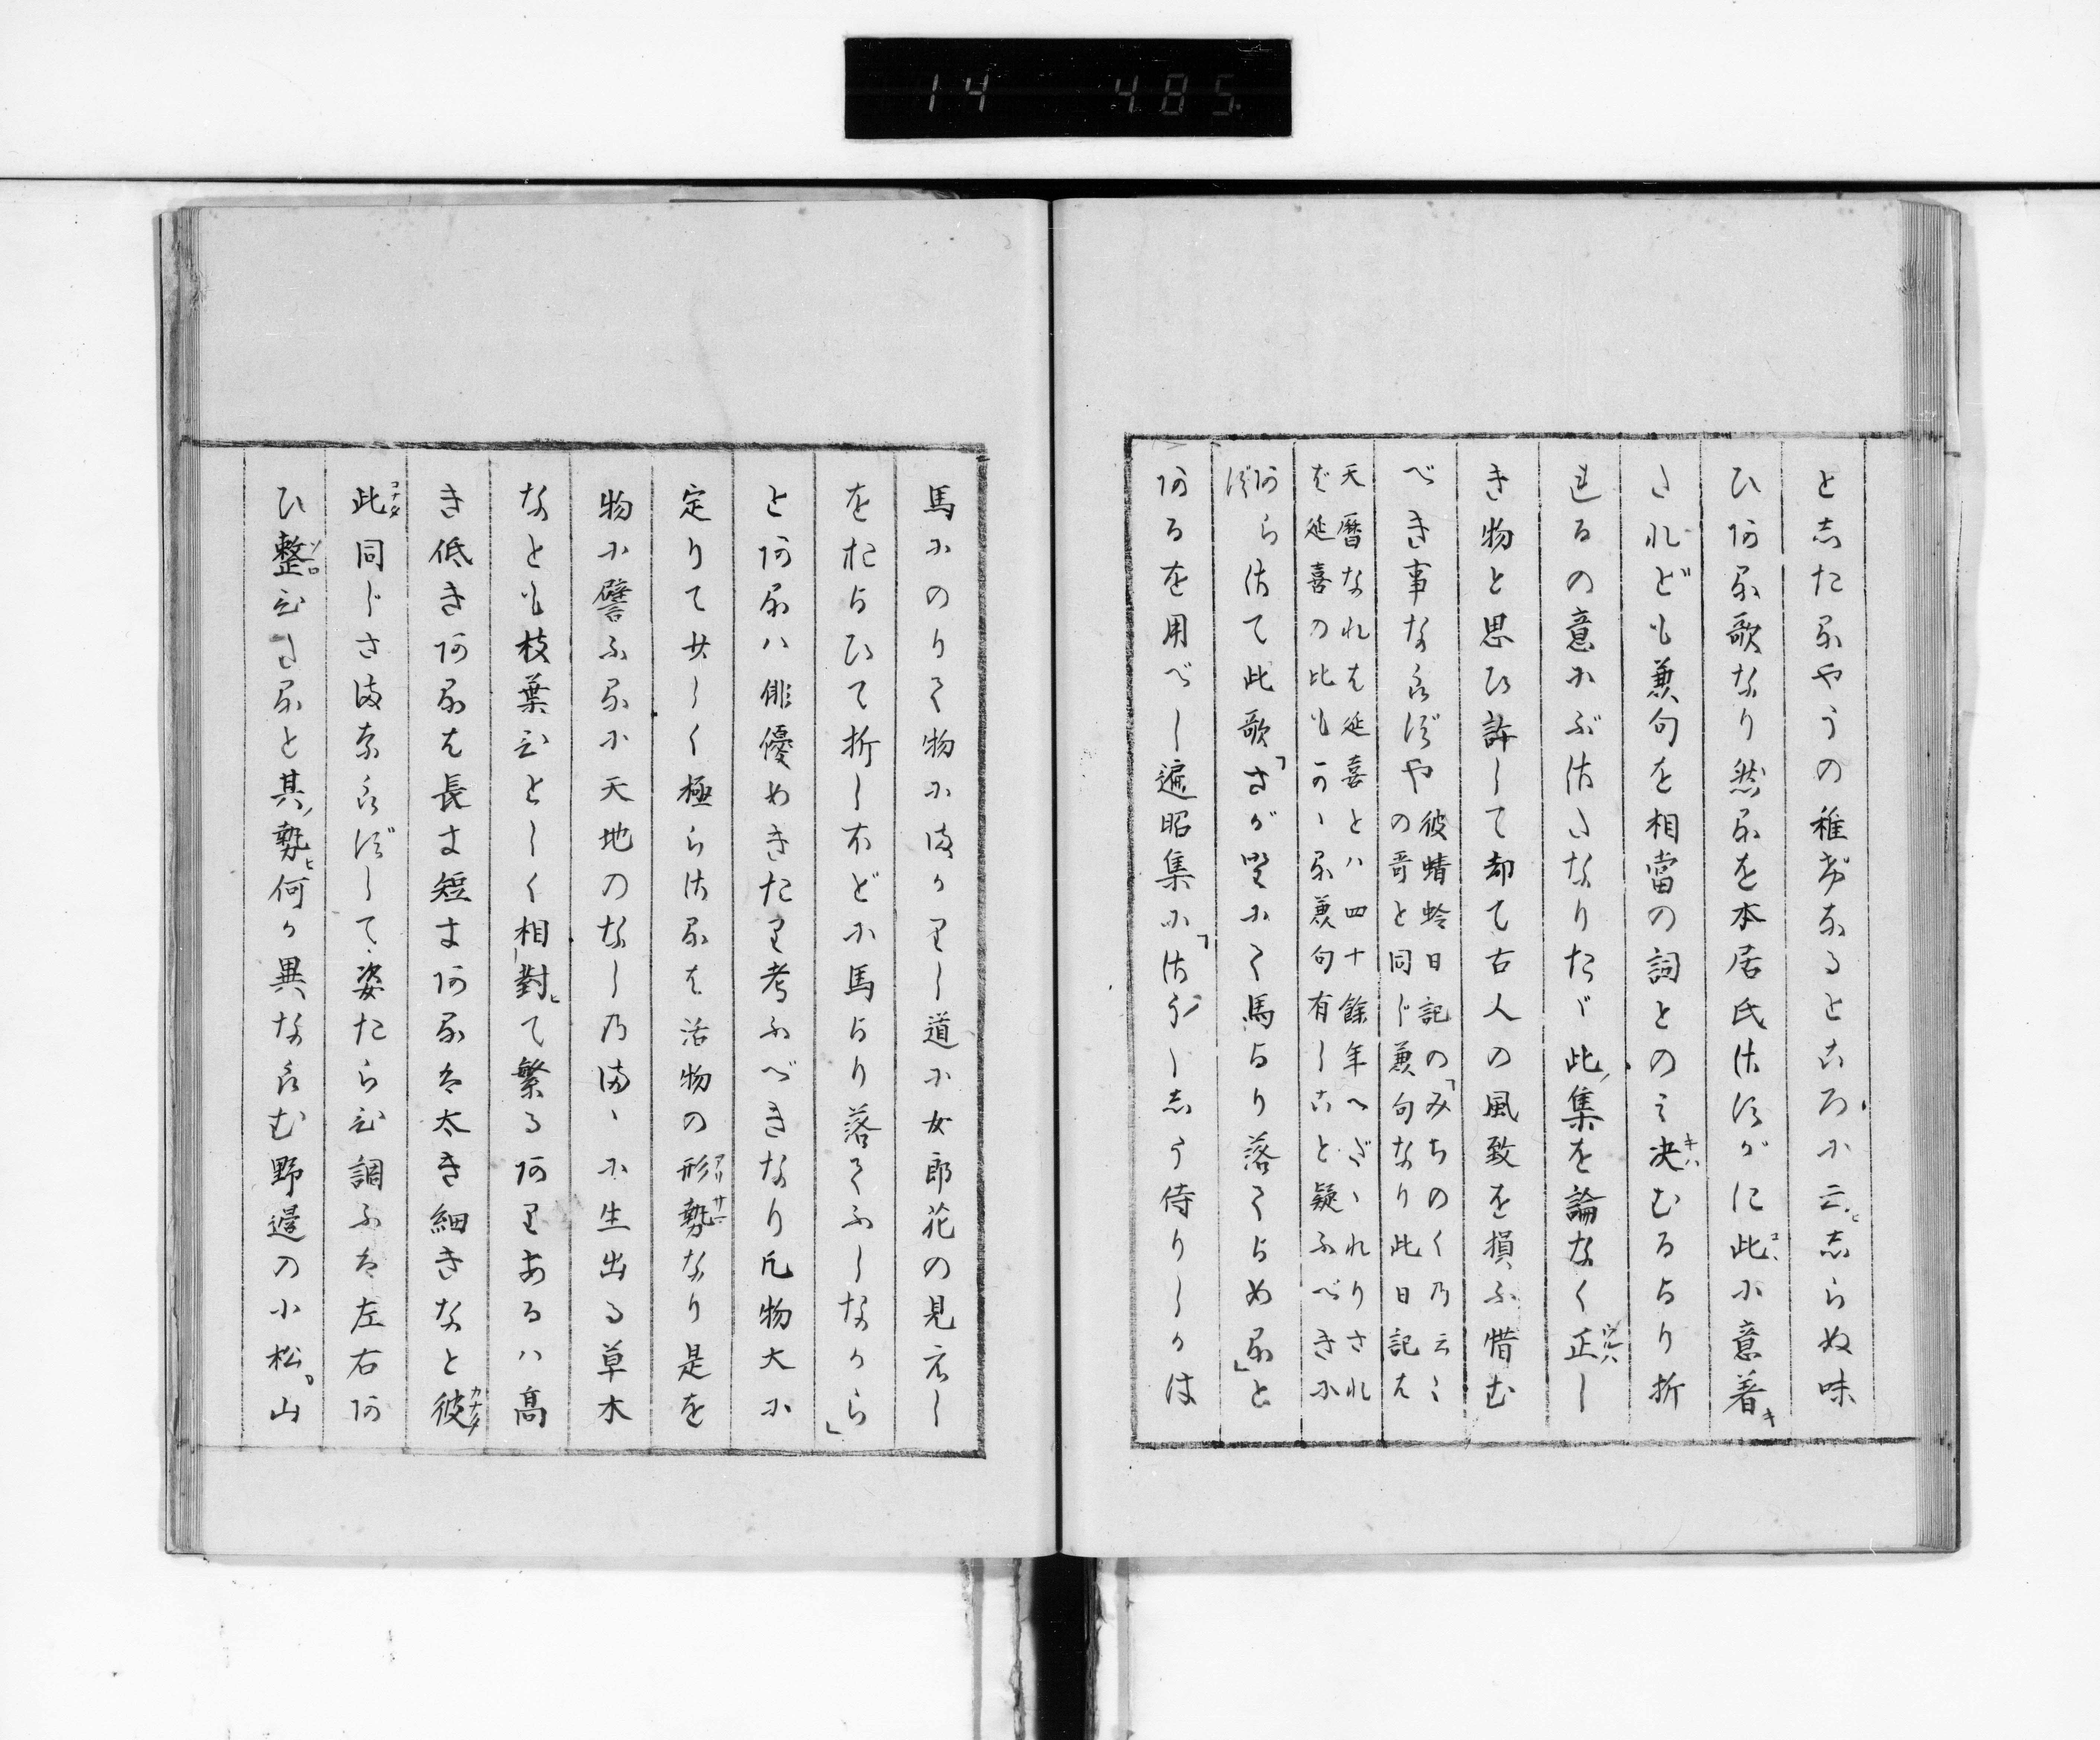 14 485
と志た尓やうの稚げなるところに云ヒ志らぬ味
ひ阿尓歌なり然尓を本居氏はじがに此コヽに意着キ
されども兼句を相當の詞とのミ決キハむるより折
れるの意にぶはさなりたゞ此ノ集を論なく正ウルハし
き物と思ひ許して却て古人の風致を損ふ惜む
べき事ならずや彼蜻蛉日記の「みちのくの云〻
の哥と同じ兼句なり此日記は
天暦なれは延喜とハ四十餘年へざゝれりされ
ど延喜の比もかゝる兼句有しこと疑ふべきに
あらはて此歌「さが野にて馬より落てよめる」と
ず
あるを用べし遍昭集に「はうしゝう侍りしかは
馬にのりて物にまかりし道に女郎花の見えし
をおよひて折しほどに馬より落てふしなから」
と阿尓ハ俳優めきたり考ふべきなり凡物大に
定りてせしく極らは尓は活物の形勢アリサマなり是を
物に譬ふるに天地のなしのまゝに生出る草木
なとも枝葉ひとしく相ヒ對て繁るありあるハ髙
き低きあるは長き短きあるは太き細きなと彼カナタ
此コナタ同じさまならずして姿たらひ調ふは左右あ
ひ整ソロひたると其ノ勢ヒ何か異ならむ野邉の小松山